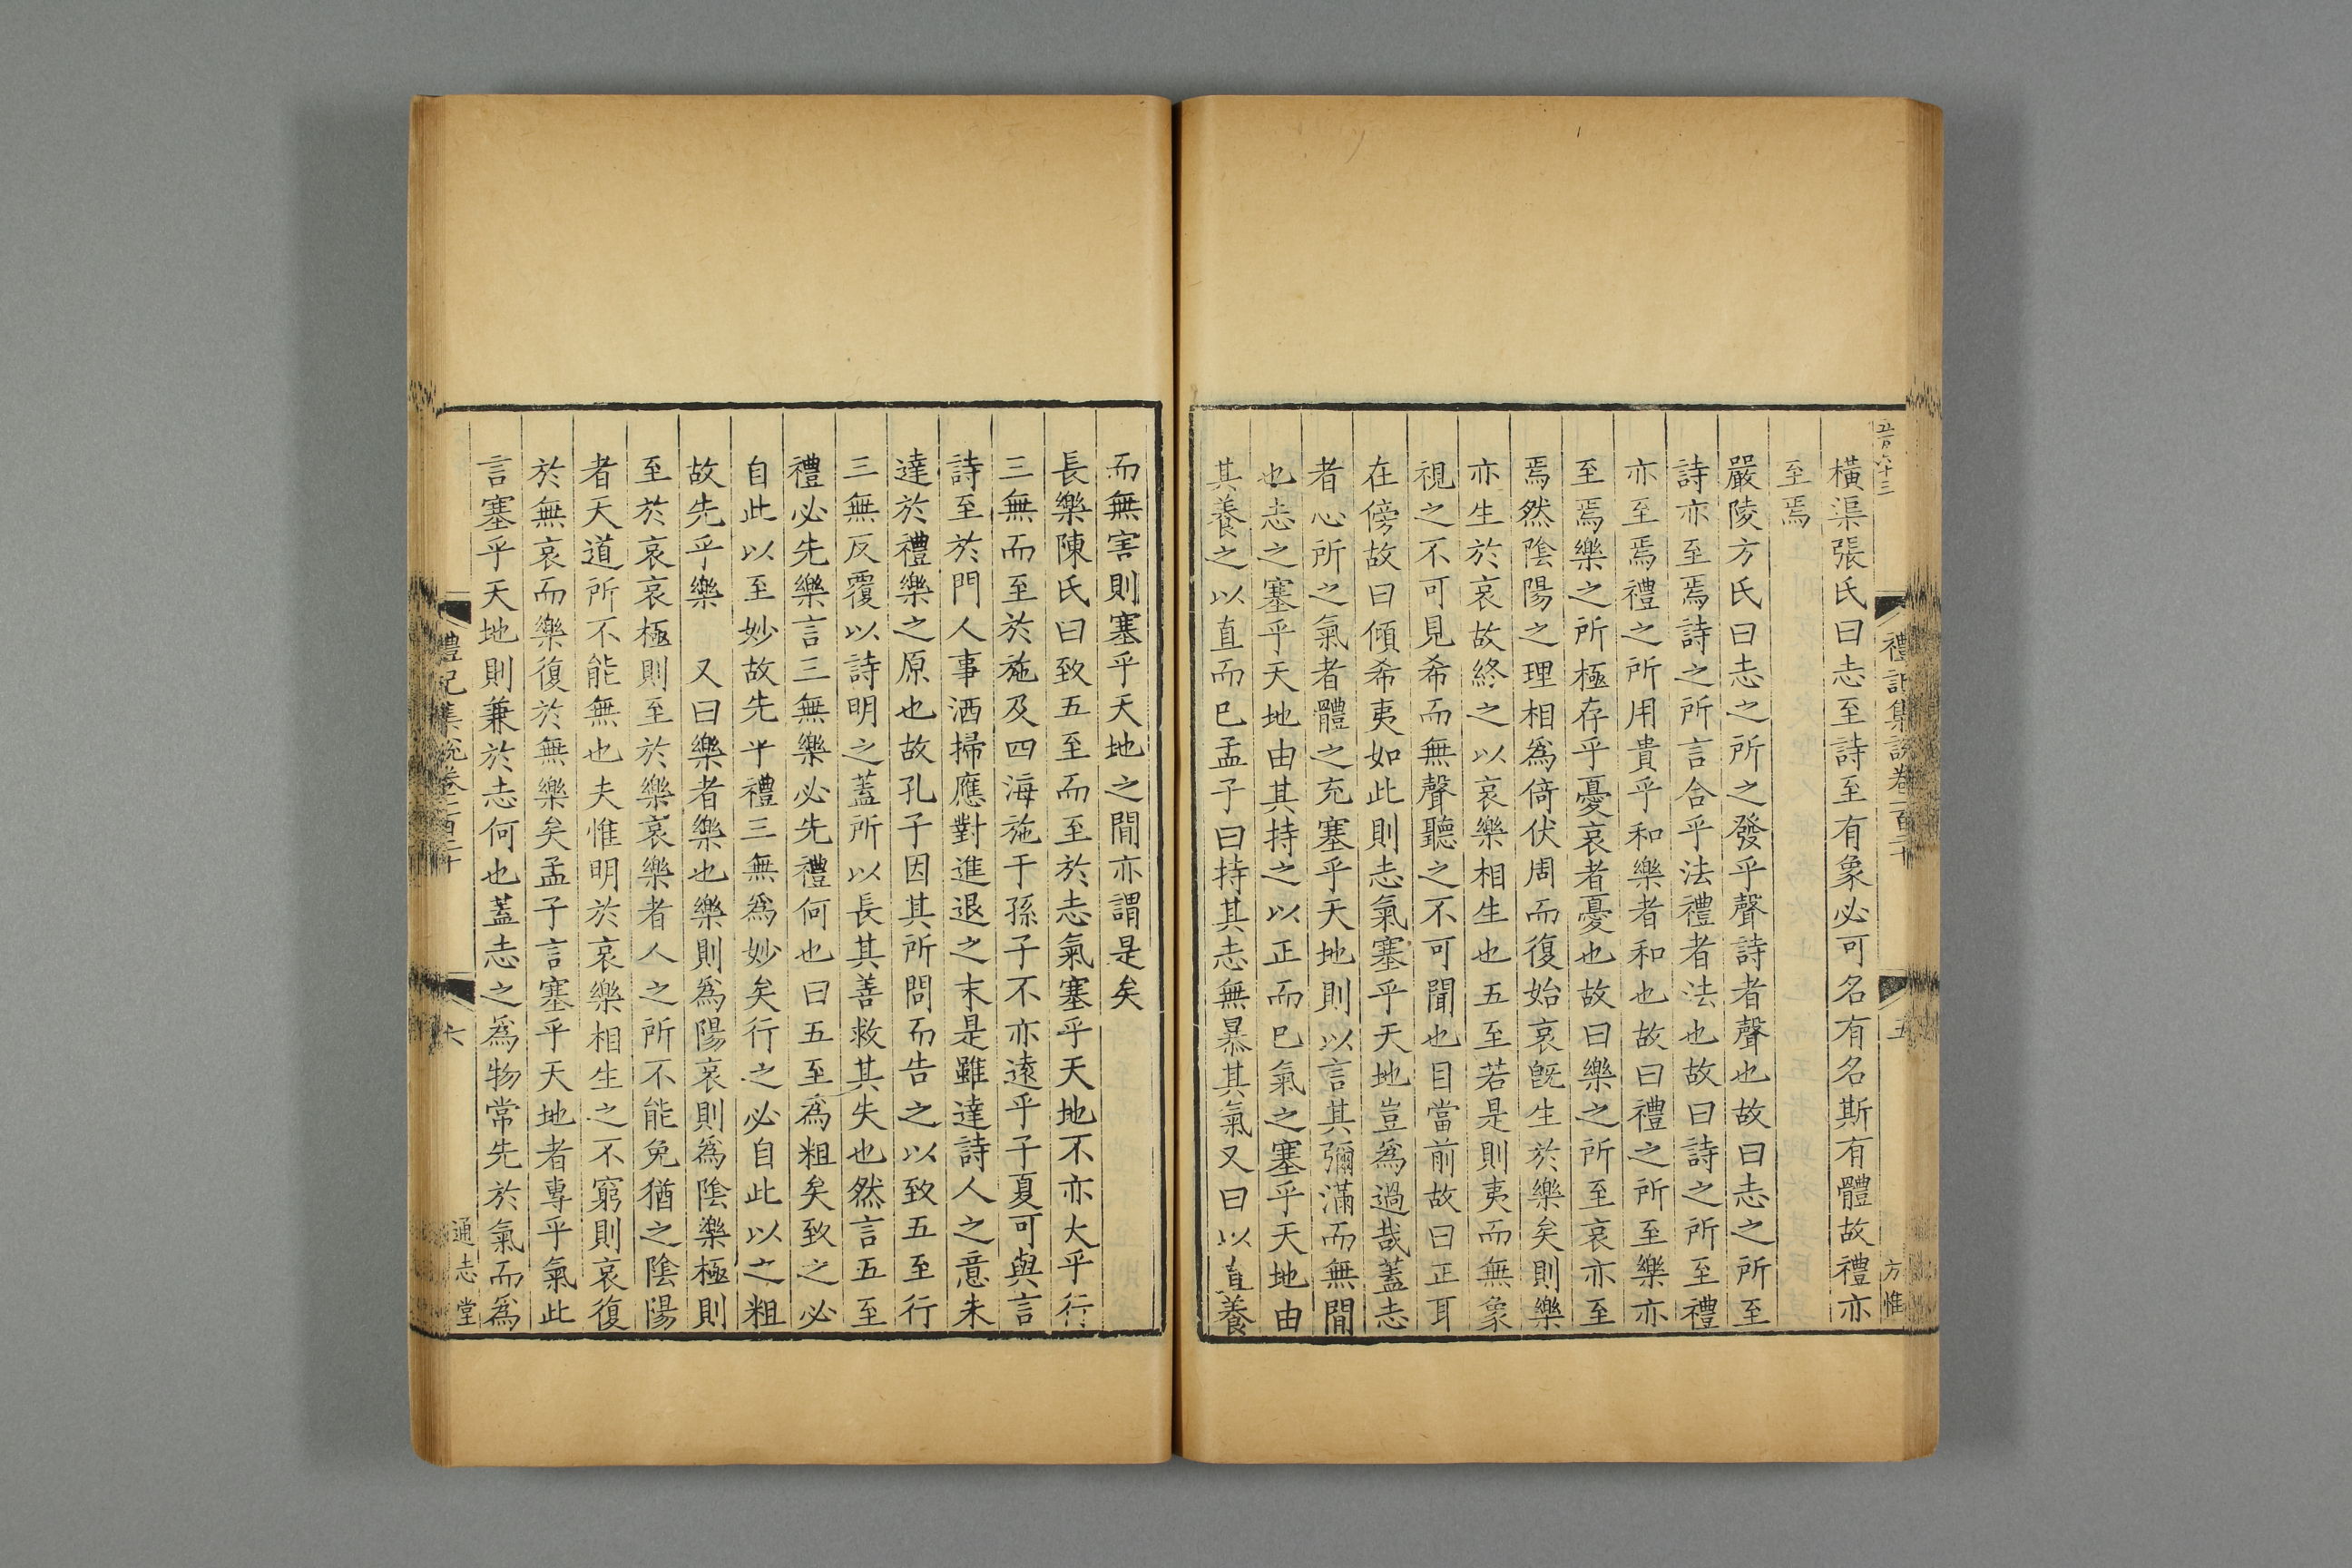 橫渠張氏曰志至詩至有象必可名有名斯有體故禮亦
至焉
嚴陵方氏曰志之所之發乎聲詩者聲也故曰志之所至
詩亦至焉詩之所言合乎法禮者法也故曰詩之所至禮
亦至焉禮之所用貴乎和樂者和也故曰禮之所至樂亦
至焉樂之所極存乎憂哀者憂也故曰樂之所至哀亦至
焉然陰陽之理相爲倚伏周而復始哀旣生於樂矣則樂
亦生於哀故終之以哀樂相生也五至若是則夷而無象
視之不可見希而無聲聽之不可聞也目當前故曰正耳
在傍故曰傾希夷如此則志氣塞乎天地豈爲過哉蓋志
者心所之氣者體之充塞乎天地則以言其彌滿而無間
也志之塞乎天地由其持之以正而已氣之塞乎天地由
其養之以直而已孟子曰持其志無暴其氣又曰以直養
禮記集說卷一百二十
五
方惟
而無害則塞乎天地之間亦謂是矣
長樂陳氏曰致五至而至於志氣塞乎天地不亦大乎行
三無而至於施及四海施于孫子不亦遠乎子夏可與言
詩至於門人事洒掃應對進退之末是雖達詩人之意未
達於禮樂之原也故孔子因其所問而告之以致五至行
三無反覆以詩明之蓋所以長其善救其失也然言五至
禮必先樂言三無樂必先禮何也曰五至爲粗矣致之必
自此以至妙故先乎禮三無爲妙矣行之必自此以之粗
故先乎樂　又曰樂者樂也樂則爲陽哀則爲陰樂極則
至於哀哀極則至於樂哀樂者人之所不能免猶之陰陽
者天道所不能無也夫惟明於哀樂相生之不窮則哀復
於無哀而樂復於無樂矣孟子言塞乎天地者專乎氣此
言塞乎天地則兼於志何也蓋志之爲物常先於氣而爲
禮記集說卷一百二十
六
通志堂